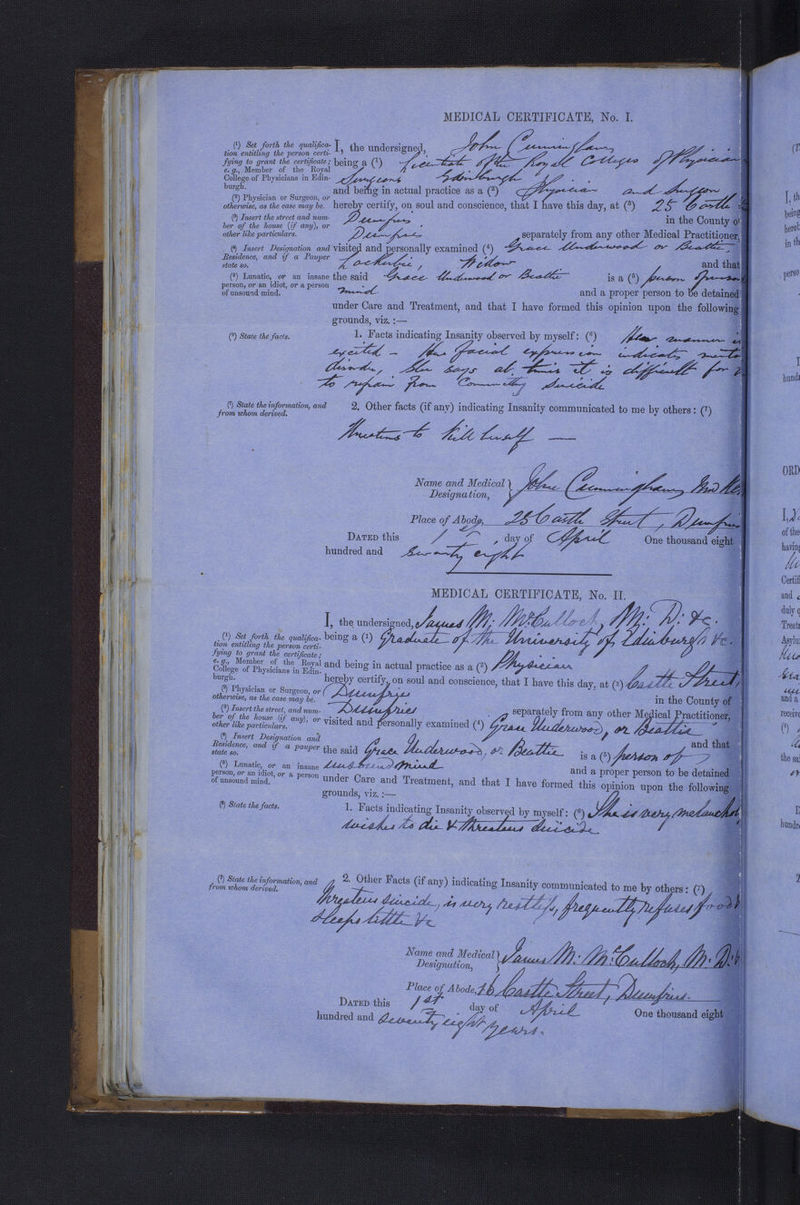 MEDICAL CERTIFICATE, No. I.
(1) Set forth the qualifica-
tion entitling the person certi-
fying to grant the certificate;
e.g., Member of the Royal
College of Physicians in Edin-
burgh.
(2) Physician or Surgeon, or
otherwise, as the case may be.
(3) Insert the street and num-
ber of the house (if any), or
other like particulars.
(4) Insert Designation and
Residence, and if a Pauper
state so.
(5) Lunatic, or an insane
person, or an idiot, or a person
of unsound mind.
I, the undersigned, John Cunningham
being a (1) Licentiate of the Royal Colleges of Physicians
Surgeons Edinburgh
and being in actual practice as a (2) Physician and Surgeon
hereby certify, on soul and conscience, that I have this day, at (3) 25 Castle
Dumfries in the County of
Dumfries, separately from any other Medical Practitioner,
visited and personally examined (4) Grace Underwood or Beattie
Lockerbie, Widow and that
the said Grace Underwood or Beattie is a (5) person of
mind and a proper person to be detained
under Care and Treatment, and that I have formed this opinion upon the following
grounds, viz.:—
(6) State the facts.
1. Facts indicating Insanity observed by myself: (6) Her manner is
excited - Her facial expression indicates
She says at it is difficult for
to refrain from Committing Suicide
(7) State the information, and
from whom derived.
2. Other facts (if any) indicating Insanity communicated to me by others: (7)
Threatens to kill herself —
Name and Medical
Designation, John Cunningham
Place of Abode, 25 Castle Street, Dumfries
DATED this 1st, day of April One thousand eight
hundred and Seventy eight
MEDICAL CERTIFICATE, No. II.
(1) Set forth the qualifica-
tion entitling the person certi-
fying to grant the certificate;
e.g., Member of the Royal
College of Physicians in Edin-
burgh.
(2) Physician or Surgeon, or
otherwise, as the case may be.
(3) Insert the street, and num-
ber of the house (if any), or
other like particulars.
(4) Insert Designation and
Residence, and if a pauper
state so.
(5) Lunatic, or an insane
person, or an idiot, or a person
of unsound mind.
I, the undersigned, James M: McCulloch, M: D: &c.
being a (1) Graduate of the University of Edinburgh &c.
and being in actual practice as a (2) Physician
hereby certify, on soul and conscience, that I have this day, at (3) Castle Street
Dumfries in the County of
Dumfries, separately from any other Medical Practitioner,
visited and personally examined (4) Grace Underwood, or Beattie
and that
the said Grace Underwood, or Beattie is a (5) person of
unsound mind and a proper person to be detained
under Care and Treatment, and that I have formed this opinion upon the following
grounds, viz.:—
(6) State the facts.
1. Facts indicating Insanity observed by myself: (6) She is very
wishes to die & threatens suicide
(7) State the information, and
from whom derived.
2. Other Facts (if any) indicating Insanity communicated to me by others: (7)
Threatens suicide, is very restless, frequently refuses food
sleeps little &c
Name and Medical
Designation, James M: McCulloch, M: D:
Place of Abode, 26 Castle Street, Dumfries.
DATED this 1st day of April One thousand eight
hundred and Seventy eight years.